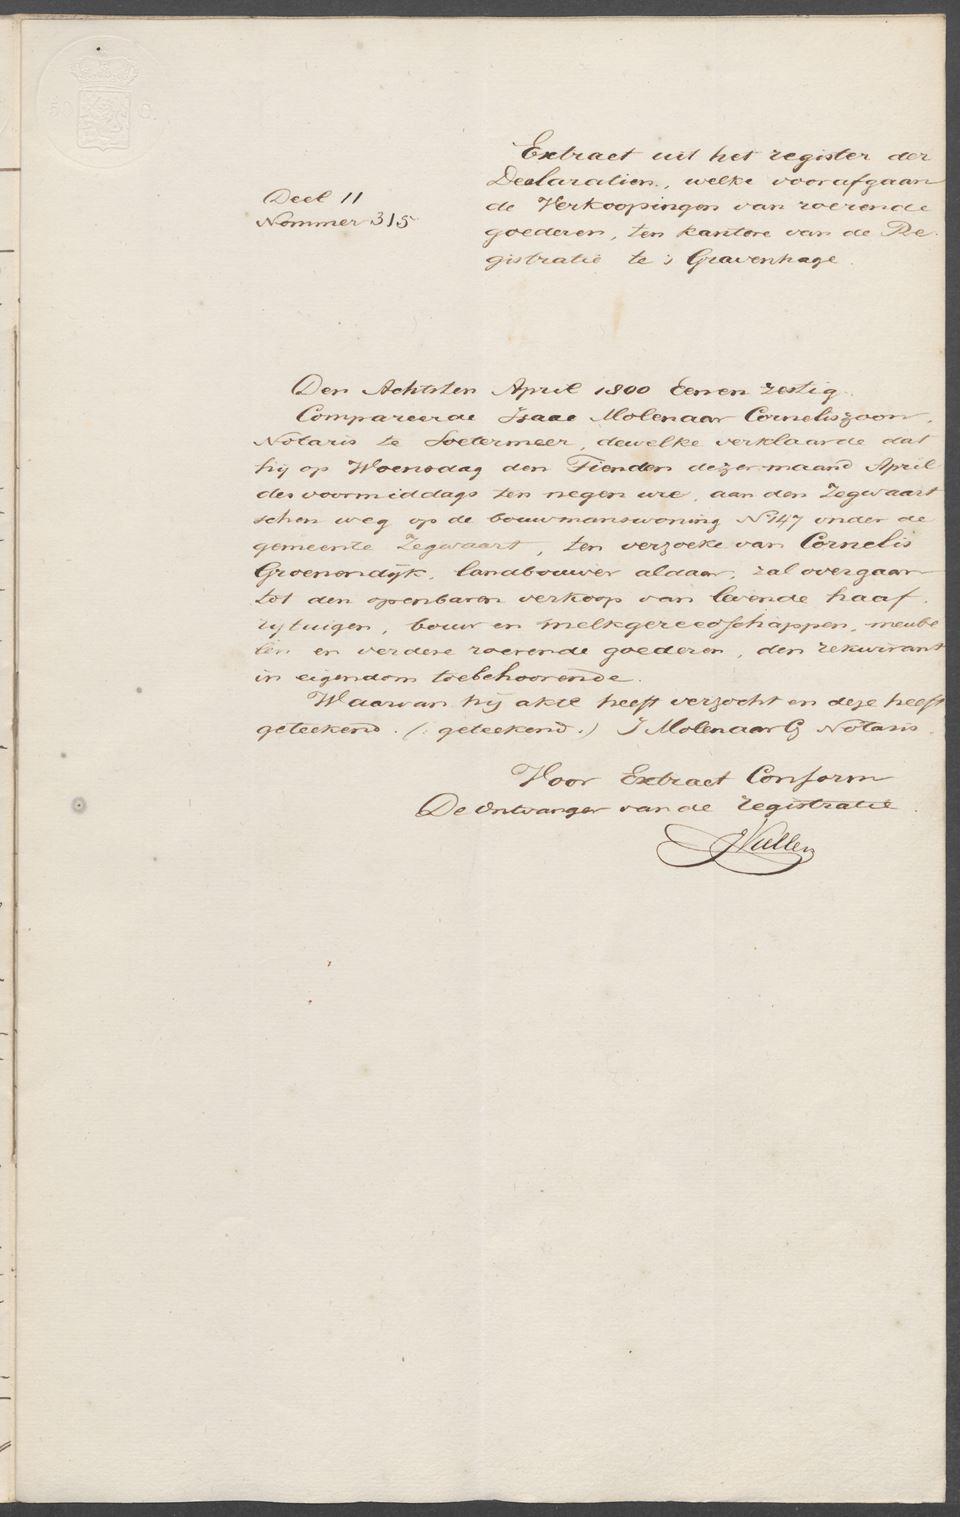 Extract uit het register der
Declaratien, welke voorafgaan
de Verkoopingen van roerende
goederen, ten kantore van de Re-
gistratie te 's Gravenhage.
Deel 11
Nommer 315
Den Achtsten April 1800 Eenen zestig.
Compareerde Izaac Molenaar Corneliszoon,
Notaris te Soetermeer, dewelke verklaarde dat
hij op Woensdag den Tienden dezer maand April
des voormiddags ten negen ure, aan den Zegwaart
schen weg op de bouwmanswoning No 147 onder de
gemeente Zegwaart, ten verzoeke van Cornelis
Groenendijk, landbouwer aldaar, zal overgaan
tot den openbaren verkoop van levende haaf,
rijtuigen, bouw en melkgereedschappen, meube
len en verdere roerende goederen, den rekwirant
in eigendom toebehoorende.
Waarvan hij akte heeft verzocht en deze heeft
geteekend. (: geteekend.) I Molenaar Cz Notaris.
Voor Extract Conform
De Ontvanger van de registratie.